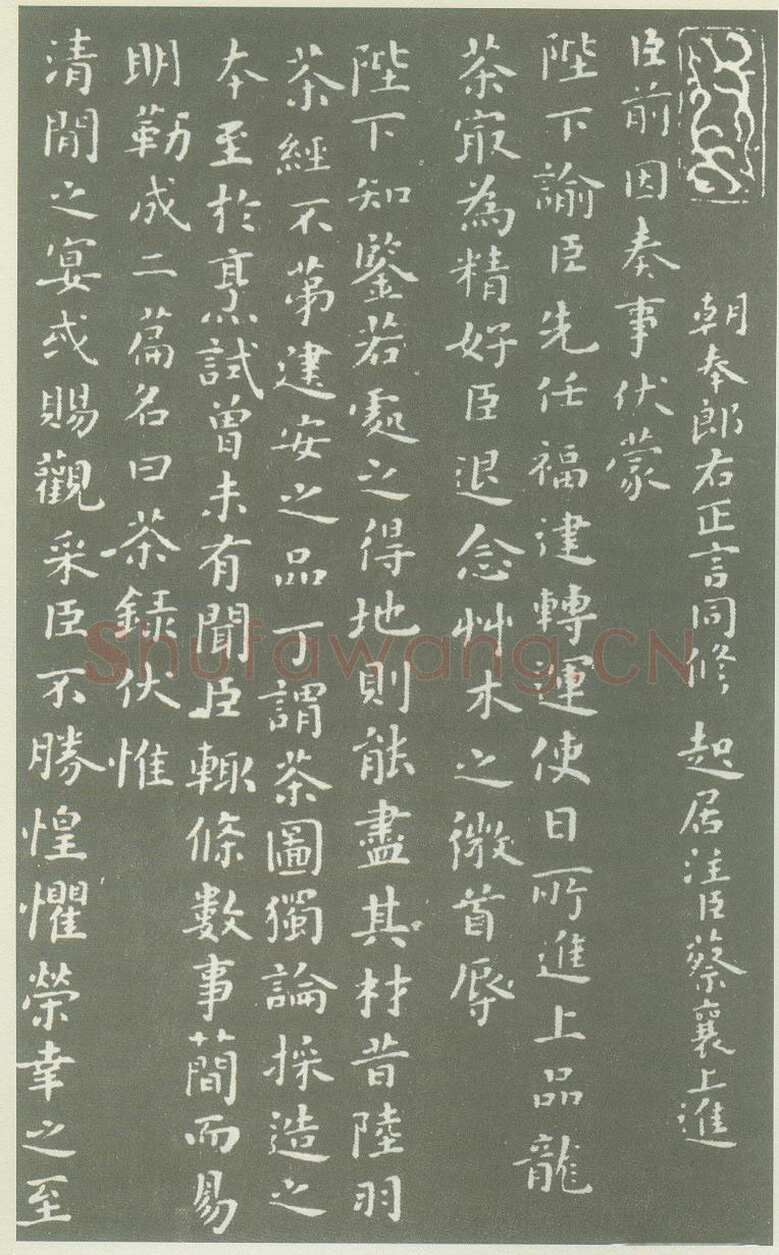 朝奉郎右正言同修起居注臣蔡襄上進
臣前因奏事伏蒙
陛下諭臣先任福建轉運使日所進上品龍
茶㝡為精好臣退念艸木之微首辱
陛下知鑒若處之得地則能盡其材昔陸羽
茶經不苐建安之品丁謂茶圖獨論採造之
本至於烹試曾未有聞臣輒條數事簡而易
明勒成二篇名曰茶録伏惟
清閒之宴或賜觀采臣不勝惶懼榮幸之至
Shufawang.CN